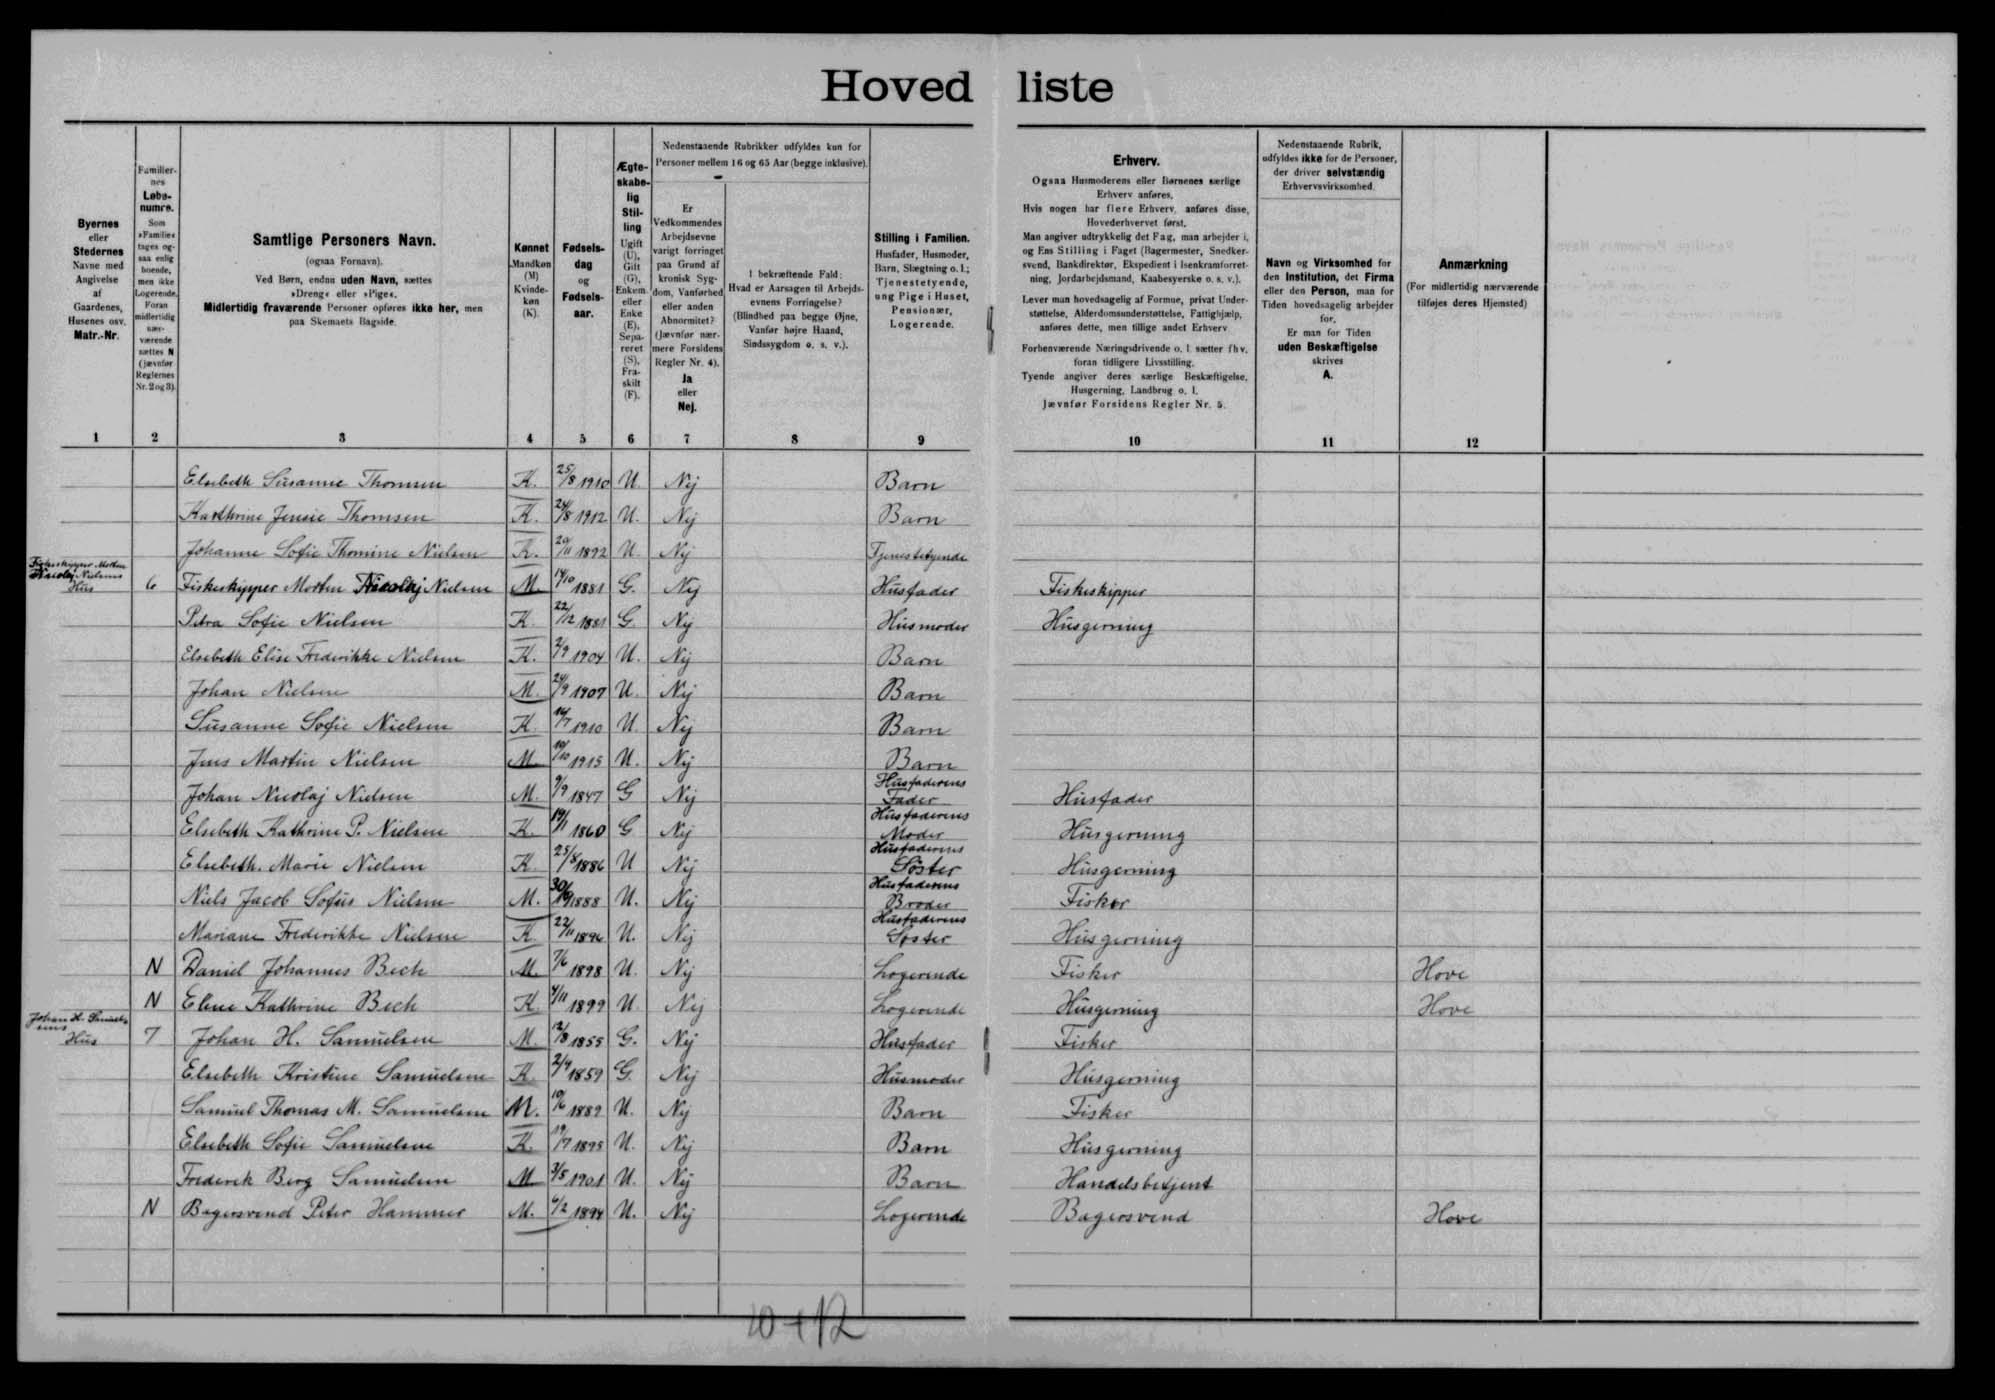 Hovedliste
Byernes
eller
Stedernes
Navne med
Angivelse
af
Gaardenes,
Husenes osv.
Matr.-Nr.
Familier-
nes
Løbe-
numre.
Som
»Familie«
tages og-
saa enlig
boende,
men ikke
Logerende.
Foran
midlertidig
nær-
værende
sættes N
(jævnfør
Reglernes
Nr. 2 og 3).
Samtlige Personers Navn.
(ogsaa Fornavn).
Ved Børn, endnu uden Navn, sættes
»Dreng« eller »Pige«.
Midlertidig fraværende Personer opføres ikke her, men
paa Skemaets Bagside.
Kønnet
Mandkøn
(M)
Kvinde-
køn
(K).
Fødsels-
dag
og
Fødsels-
aar.
Ægte-
skabe-
lig
Stil-
ling
Ugift
(U),
Gift
(G),
Enkem.
eller
Enke
(E),
Sepa-
reret
(S),
Fra-
skilt
(F).
Nedenstaaende Rubrikker udfyldes kun for
Personer mellem 16 og 65 Aar (begge inklusive).
Er
Vedkommendes
Arbejdsevne
varigt forringet
paa Grund af
kronisk Syg-
dom, Vanførhed
eller anden
Abnormitet?
(Jævnfør nær-
mere Forsidens
Regler Nr. 4).
Ja
eller
Nej.
I bekræftende Fald:
Hvad er Aarsagen til Arbejds-
evnens Forringelse?
(Blindhed paa begge Øjne,
Vanfør højre Haand,
Sindssygdom o. s. v.).
Stilling i Familien.
Husfader, Husmoder,
Barn, Slægtning o. l.;
Tjenestetyende,
ung Pige i Huset,
Pensionær,
Logerende.
Erhverv.
Ogsaa Husmoderens eller Børnenes særlige
Erhverv anføres.
Hvis nogen har flere Erhverv, anføres disse,
Hovederhvervet først.
Man angiver udtrykkelig det Fag, man arbejder i,
og Ens Stilling i Faget (Bagermester, Snedker-
svend, Bankdirektør, Ekspedient i Isenkramforret-
ning, Jordarbejdsmand, Kaabesyerske o. s. v.).
Lever man hovedsagelig af Formue, privat Under-
støttelse, Alderdomsunderstøttelse, Fattighjælp,
anføres dette, men tillige andet Erhverv
Forhenværende Næringsdrivende o. l. sætter fhv.
foran tidligere Livsstilling.
Tyende angiver deres særlige Beskæftigelse,
Husgerning, Landbrug o. l.
Jævnfør Forsidens Regler Nr. 5.
Nedenstaaende Rubrik,
udfyldes ikke for de Personer,
der driver selvstændig
Erhvervsvirksomhed.
Navn og Virksomhed for
den Institution, det Firma
eller den Person, man for
Tiden hovedsagelig arbejder
for,
Er man for Tiden
uden Beskæftigelse
skrives
A.
Anmærkning
(For midlertidig nærværende
tilføjes deres Hjemsted)
1 2 3 4 5 6 7 8 9 10 11 12
Elsebeth Susanne Thomsen K. 25/8 1910 U. Nej Barn
Kathrine Jensie Thomsen K. 24/8 1912 U. Nej Barn
Johanne Sofie Thomine Nielsen K. 20/11 1892 U. Nej Tjenestetyende
Fiskeskipper Morten
Nicolaj Nielsens
Hus 6 Fiskeskipper Morten Nicolaj Nielsen M. 14/10 1881 G. Nej Husfader Fiskeskipper
Petra Sofie Nielsen K. 22/12 1881 G. Nej Husmoder Husgerning
Elsebeth Elise Frederikke Nielsen K. 2/9 1904 U. Nej Barn
Johan Nielsen M. 24/9 1907 U. Nej Barn
Susanne Sofie Nielsen K. 14/7 1910 U. Nej Barn
Jens Martin Nielsen M. 10/10 1915 U. Nej Barn
Johan Nicolaj Nielsen M. 9/9 1847 G Nej Husfaderens Fader Husfader
Elsebeth Kathrine P. Nielsen K. 19/11 1860 G Nej Husfaderens Moder Husgerning
Elsebeth Marie Nielsen K. 25/8 1886 U Nej Husfaderens Søster Husgerning
Niels Jacob Sofus Nielsen M. 30/9 1888 U. Nej Husfaderens Broder Fisker
Mariane Frederikke Nielsen K. 22/11 1896 U. Nej Husfaderens Søster Husgerning
N Daniel Johannes Bech M. 7/6 1898 U. Nej Logerende Fisker Hove
N Elene Kathrine Bech K. 4/11 1899 U. Nej Logerende Husgerning Hove
Johan H. Samuel-
sens
Hus 7 Johan H. Samuelsen M. 12/8 1855 G. Nej Husfader Fisker
Elsebeth Kristine Samuelsen K. 2/4 1859 G. Nej Husmoder Husgerning
Samuel Thomas M. Samuelsen M. 10/6 1889 U. Nej Barn Fisker
Elsebeth Sofie Samuelsen K. 19/7 1895 U. Nej Barn Husgerning
Frederik Berg Samuelsen M 3/5 1901 U. Nej Barn Handelsbetjent
N Bagersvend Peter Hammer M. 6/2 1894 U. Nej Logerende Bagersvend Hove
10+12